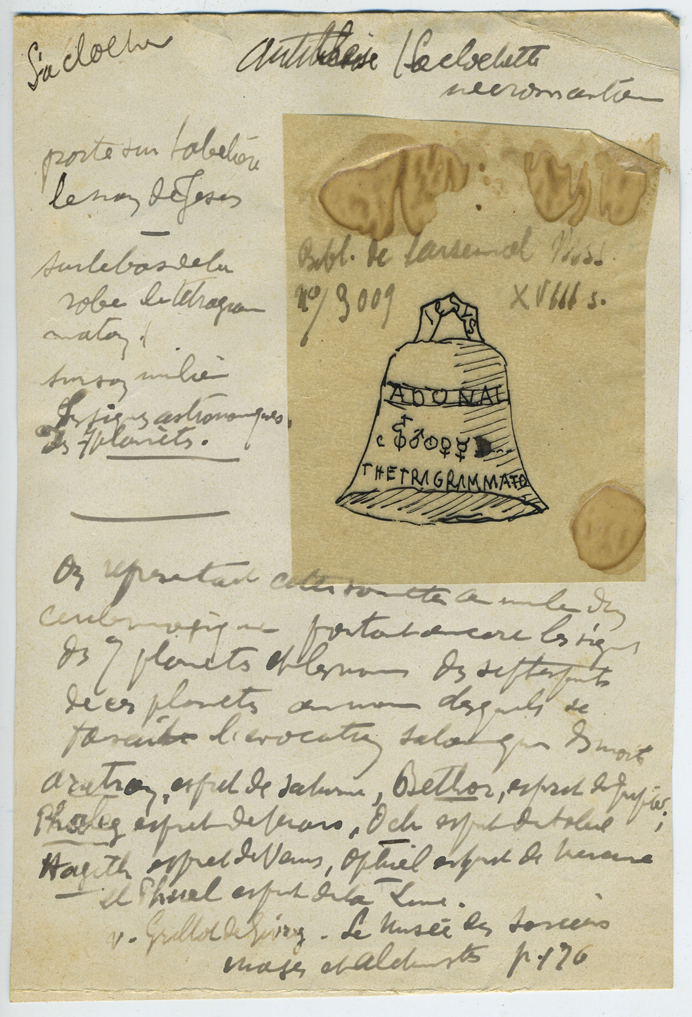 La cloche
antithèse / La clochette
necromantien
porte sur
le nom de Jesus
sur le bas de la
robe le tetragram
maton
sur son milieu
les signes astronomiques
des 7 planets.
Bibl. de Larsenal Miss.
no/3009 XVIII s.
ADONAI
♂☉♀☿
THETRAGRAMMATO
On representait cette sonnette au milieu d'un
cercle magique portant encore les signes
des 7 planets et les noms des sept esprits
de ces planets au nom desquels se
l'evocation des morts
Aratron, esprit de Saturne, Bethor, esprit de Jupiter,
Phaleg esprit de Mars, Och esprit du Soleil
Hagith esprit de Venus, Ophiel esprit de Mercure
et Phuel esprit de la Lune.
v. Grillot de Givry - Le Musée des Sorciers
mages et alchimistes p. 176